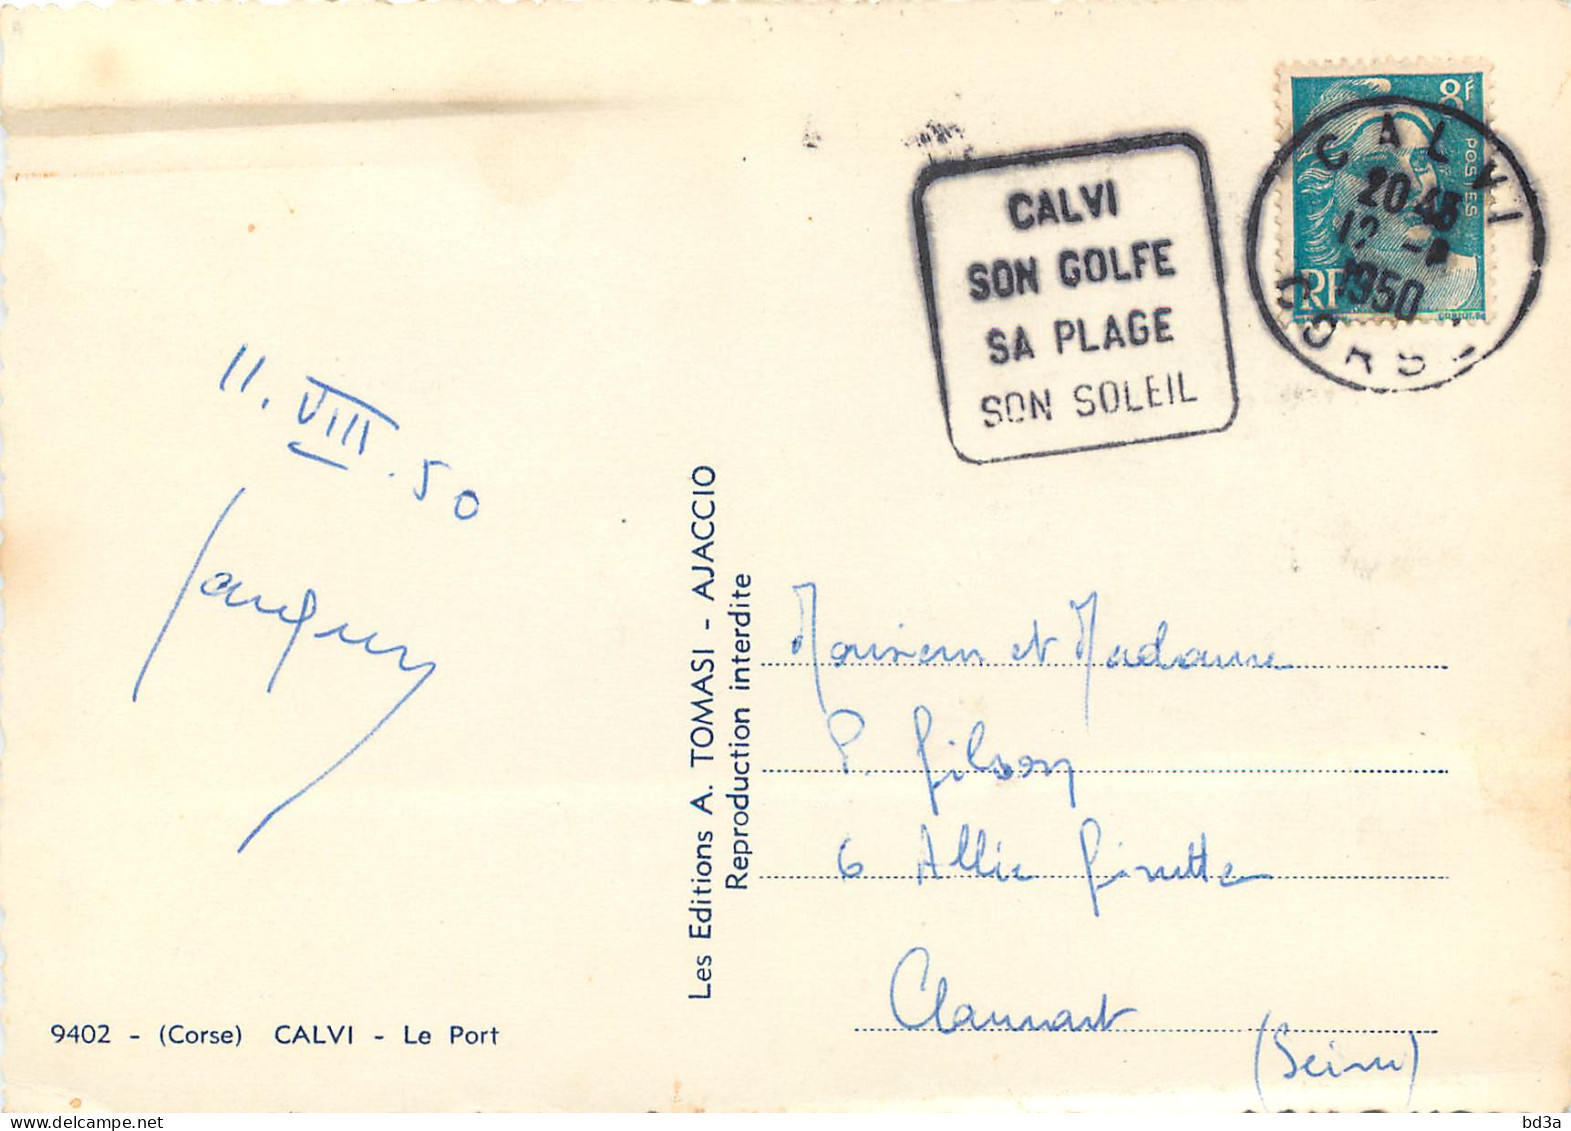 CALVI
SON GOLFE
SA PLAGE
SON SOLEIL
8F
POSTES
RF
CALVI
20 45
12 - 8
1950
CORSE
11. VIII. 50
Jacquy
Les Editions A. TOMASI - AJACCIO
Reproduction interdite
Monsieur et Madame
P. Gilson
6 Allée Ginette
Clamart
(Seine)
9402 - (Corse) CALVI - Le Port
bd3a